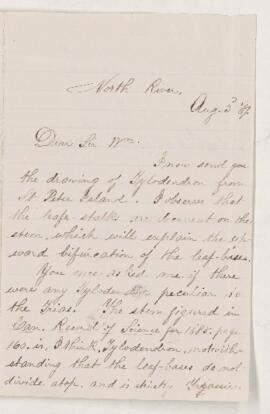 North River,
Aug. 3d '87.
Dear Sir Wm.
I now send you
the drawing of Tylodendron from
St Peter Island. I observe that
the leaf-stalks are decurrent on the
stem, which will explain the up-
ward bifurcation of the leaf-bases.
You once asked me if there
were any Tylodendra peculiar to
the Trias. The stem figured in
Can. Record of Science for 1885, page
160. is, I think, Tylodendron, notwith-
standing that the leaf-bases do not
divide atop, and is strictly Triassic.